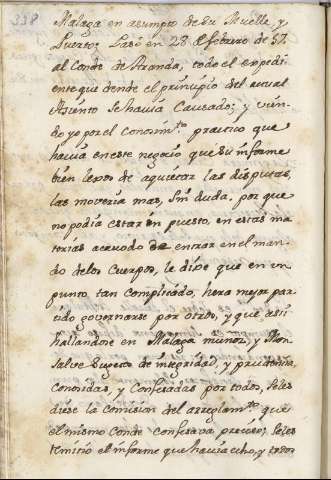 338
Malaga en asumpto de su Muelle, y
Puerto; Pasó en 28 de febrero de 57.
al Conde de Aranda, todo el expedi-
ente que desde el principio del actual
Asiento se havia Causado; y vien-
do yo por el Conosim.to practico que
havia en este negocio que su informe
bien lexos de aquietar las disputas,
las moveria mas, sin duda, por que
no podia estar en puesto, en estas ma-
terias acavado de entrar en el man-
do de los Cuerpos, le dixe que en un
punto, tan complicado, hera mejor par-
tido governarse por otros, y que assi
hallandose en Malaga Muñoz, y Mon-
salve Sugetos de integridad, y prudencia,
Conosidas, y Confesadas por todos, seles
diese la comision del arreglam.to que
el mismo Conde confesava preciso; Seles
remitió el informe que havia echo, y todos